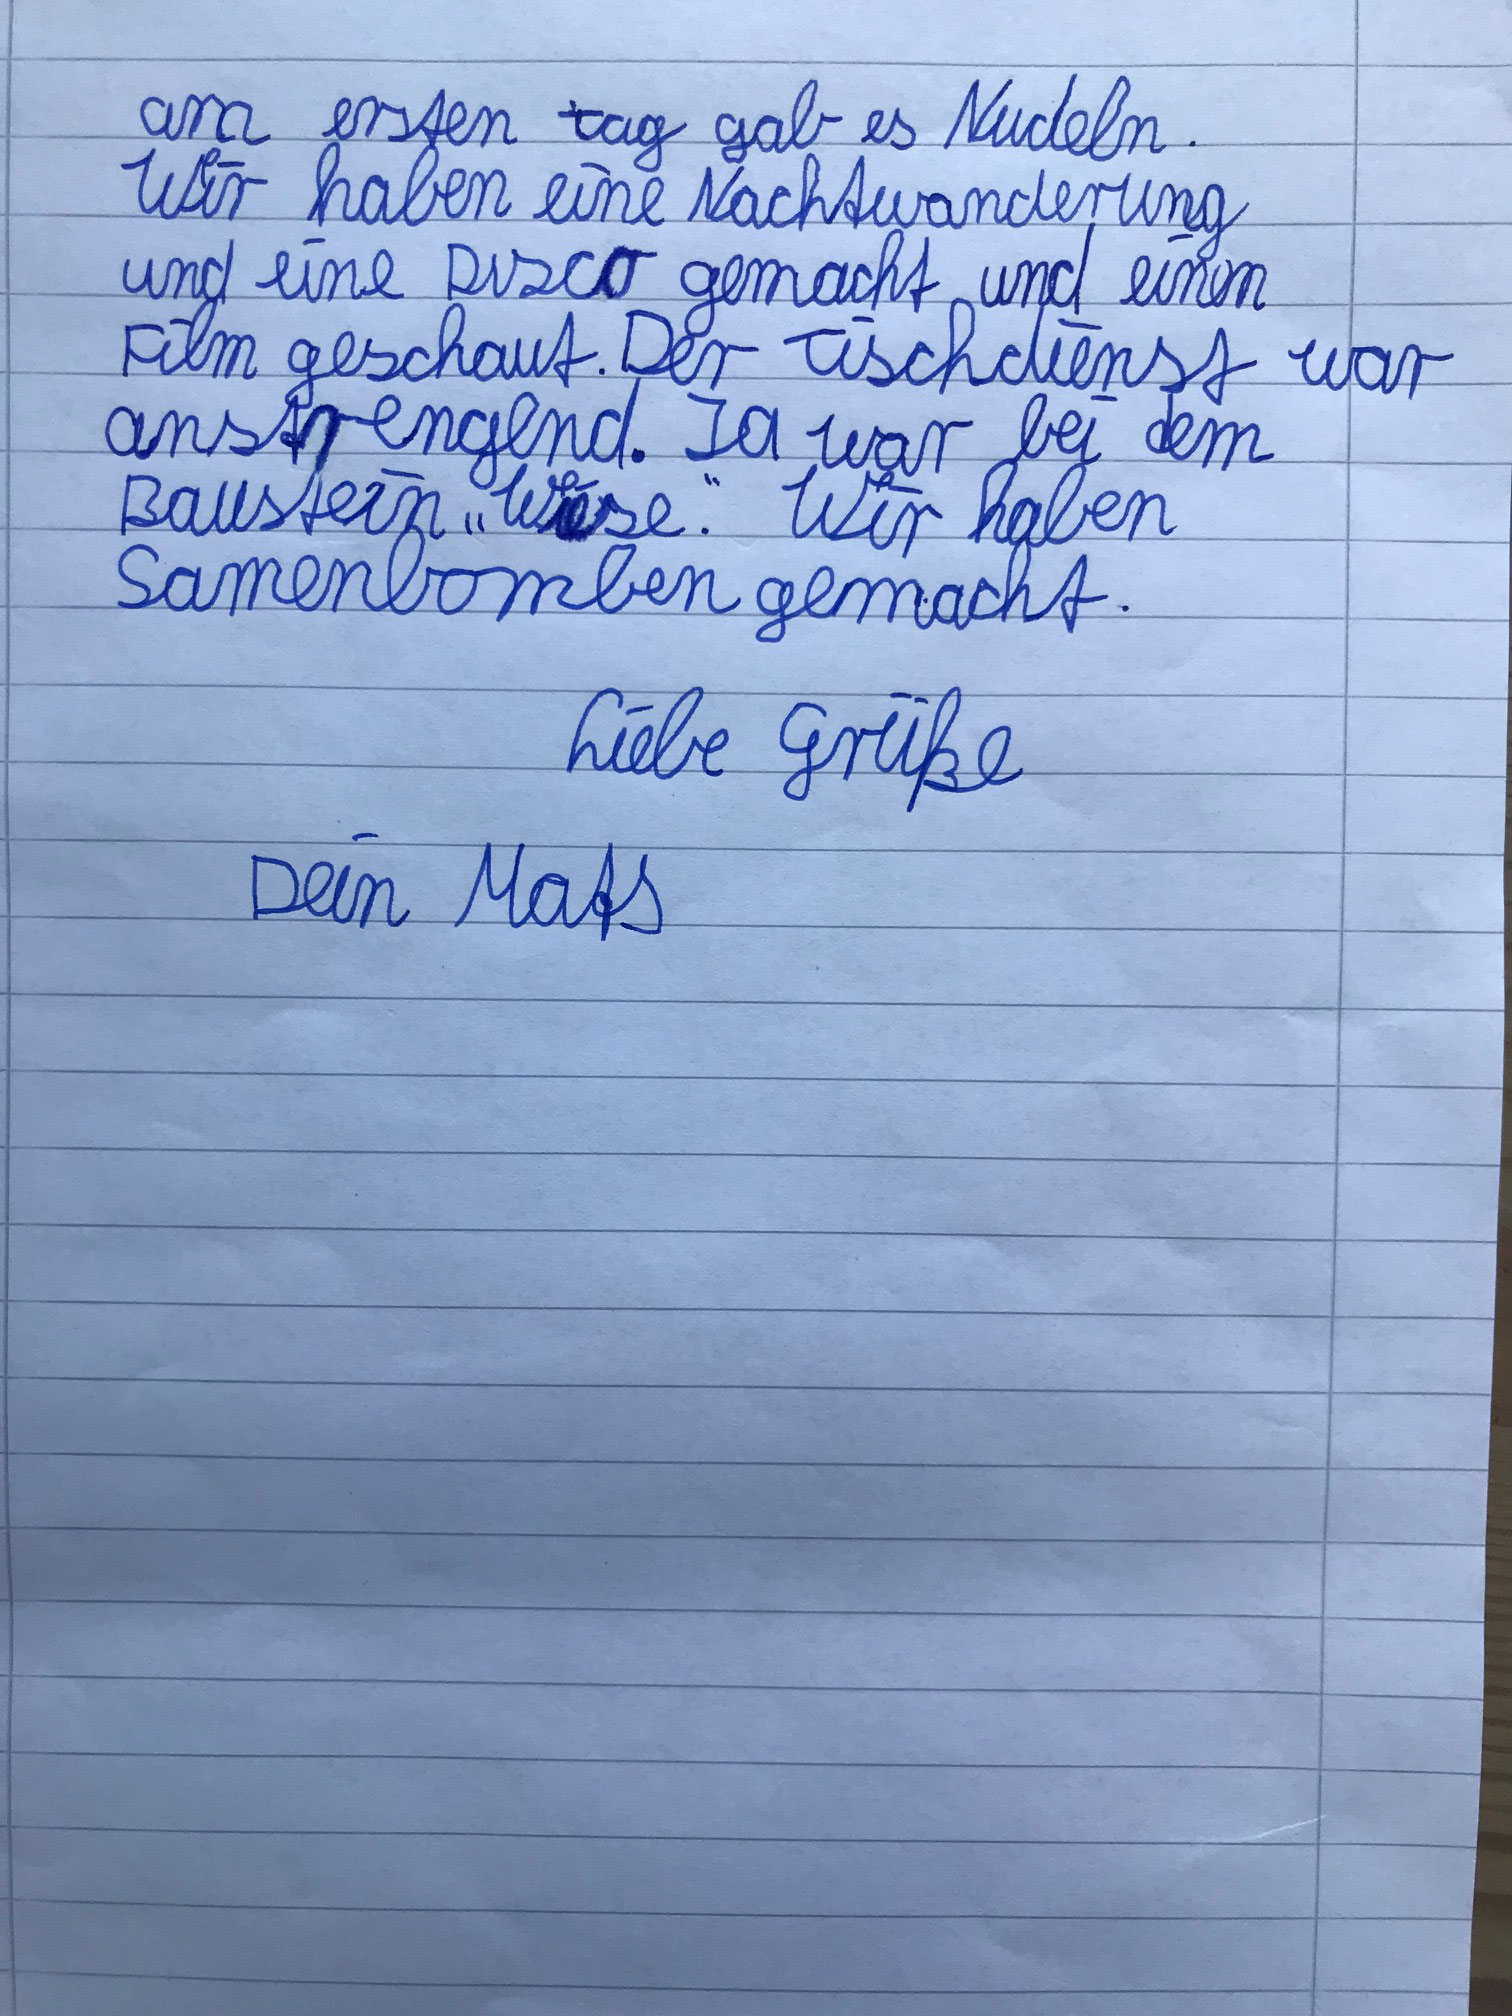 am ersten tag gab es Nudeln.
Wir haben eine Nachtwanderung
und eine Disco gemacht und einen
Film geschaut. Der Tischdienst war
anstrengend. Ia war bei dem
Baustein „Wiese." Wir haben
Samenbomben gemacht.
Liebe Grüße
Dein Mats